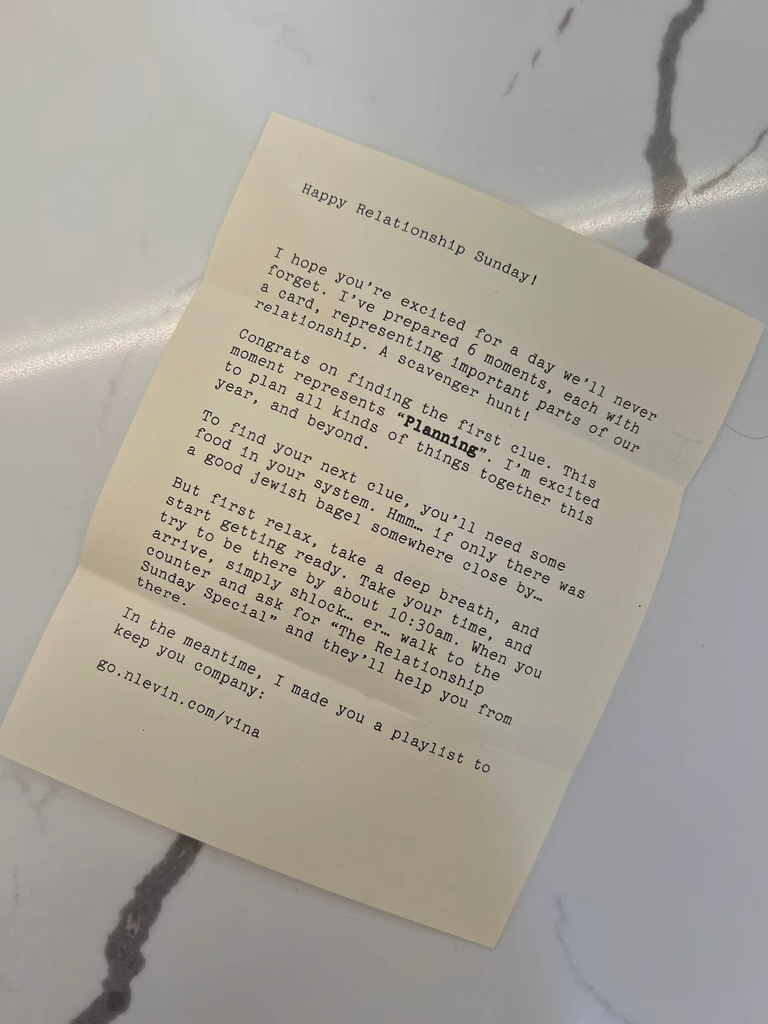 Happy Relationship Sunday!
I hope you're excited for a day we'll never
forget. I've prepared 6 moments, each with
a card, representing important parts of our
relationship. A scavenger hunt!
Congrats on finding the first clue. This
moment represents “Planning”. I'm excited
to plan all kinds of things together this
year, and beyond.
To find your next clue, you'll need some
food in your system. Hmm… if only there was
a good jewish bagel somewhere close by…
But first relax, take a deep breath, and
start getting ready. Take your time, and
try to be there by about 10:30am. When you
arrive, simply shlock… er… walk to the
counter and ask for “The Relationship
Sunday Special” and they'll help you from
there.
In the meantime, I made you a playlist to
keep you company:
go.nlevin.com/vina